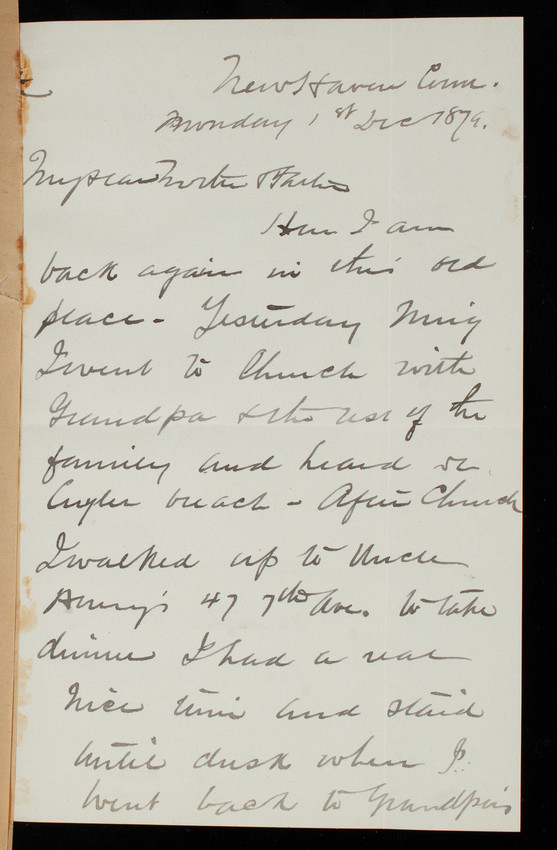 New Haven Conn.
Monday 1st Dec 1879.
My dear Mother & Father
Here I am
back again in this old
place - Yesterday
I went to Church with
Grandpa & the rest of the
family and heard Dr
Cuyler preach - After Church
I walked up to Uncle
Henry's 47 7th Ave. to take
dinner I had a real
nice time and staid
until dusk when I
went back to Grandpa's